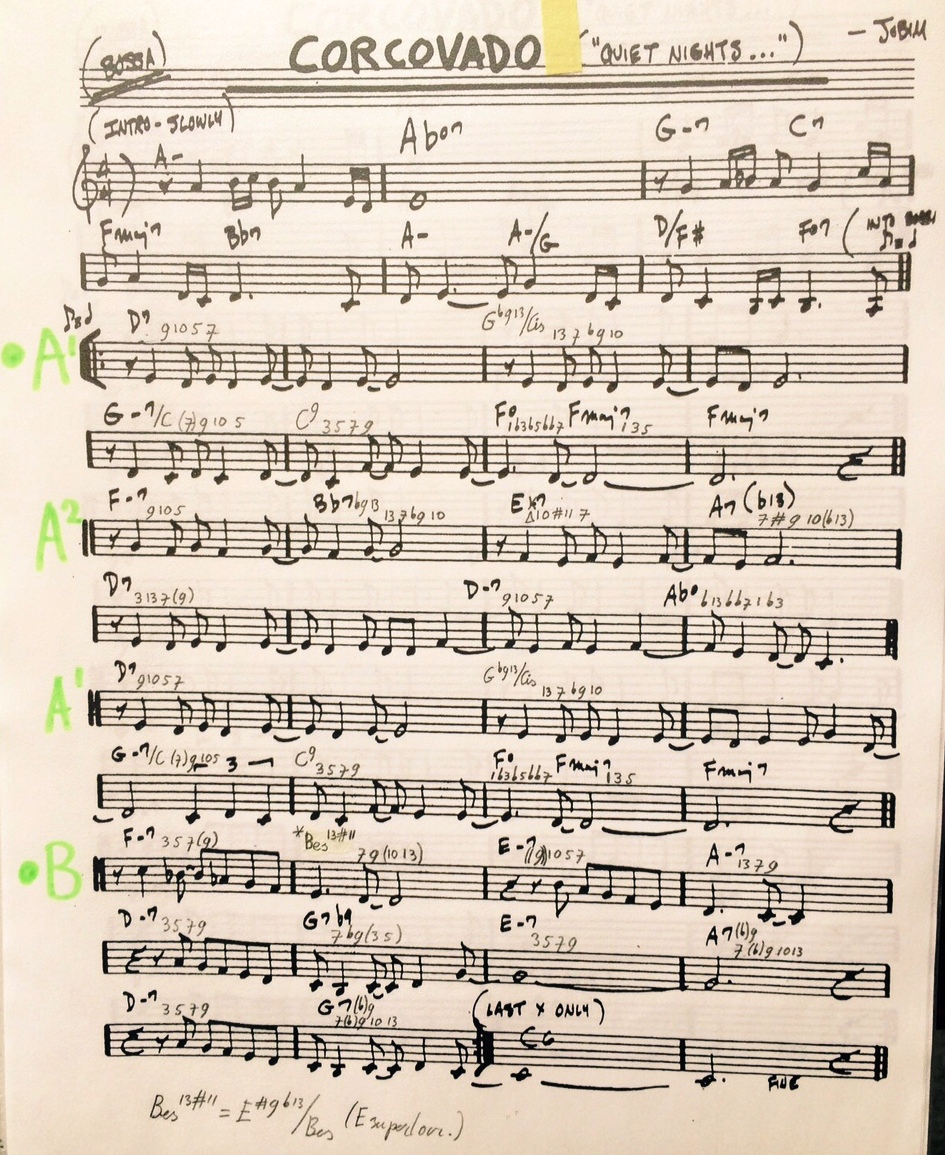 (BOSSA) CORCOVADO ("QUIET NIGHTS...") — JOBIM
(INTRO - SLOWLY)
A- Abo7 G-7 C7
4/4
Fmaj7 Bb7 A- A-/G D/F# Fo7 (INTO BOSSA
A1 D7 9 10 5 7 G b9 13/Cis 13 7 b9 10
G-7/C (7) 9 10 5 C9 3 5 7 9 Fo 1 b3 b5 bb7 Fmaj7 1 3 5 Fmaj7
A2 F-7 9 10 5 Bb7 b9 13 13 7 b9 10 A7 (b13)
Δ 10 #11 7 7 # 9 10 (b13)
D7 3 13 7 (9) D-7 9 10 5 7 Abo b6 13 bb7 1 b3
A1 D7 9 10 5 7 G b9 13/Cis 13 7 b9 10
G-7/C (7) 9 10 5 3 C9 3 5 7 9 Fo 1 b3 b5 bb7 Fmaj7 1 3 5 Fmaj7
B F-7 3 5 7 (9) *Bes 13 #11 7 9 (10 13) E-7 (9) 10 5 7 A-7 1 3 7 9
D-7 3 5 7 9 G7 b9 7 b9 (3 5) E-7 3 5 7 9 A7 (b)9 7 (b)9 10 13
D-7 3 5 7 9 G7 (b)9 7 (b)9 10 13 (LAST X ONLY)
C6
FINE
Bes 13 #11 = E #9 b13/Bes (E superlocr.)